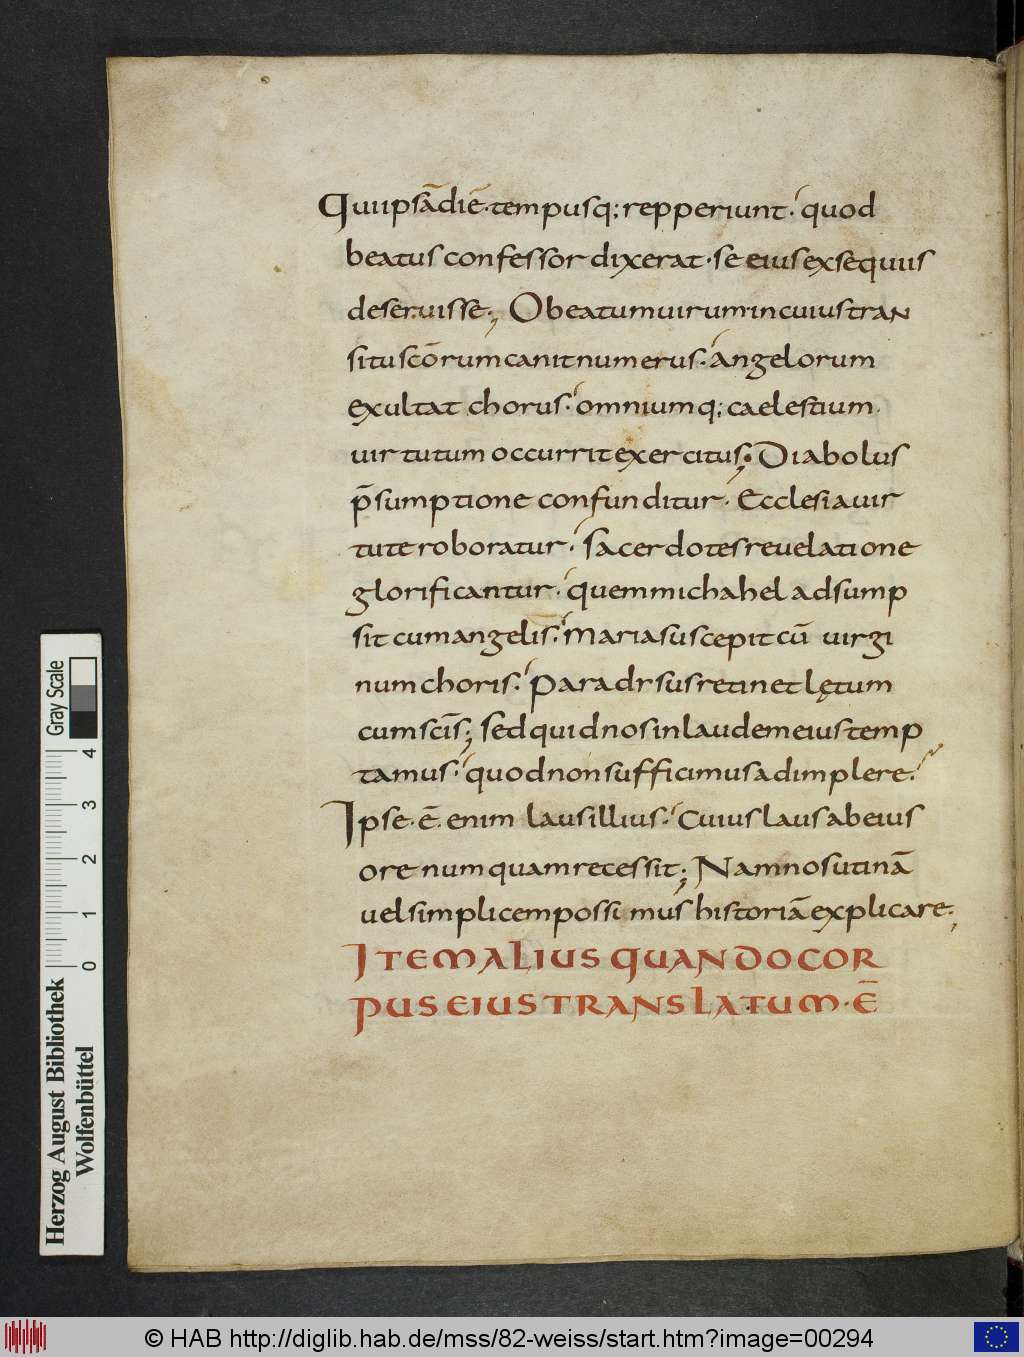 Qui ipsā diē· tempusq; repperiunt· quod
beatus confessor dixerat· se eius exsequiis
deseruisse; O beatum uirum in cuius tran
situ scōrum canit numerus· angelorum
exultat chorus· omniumq; caelestium·
uirtutum occurrit exercitus; Diabolus
p̄sumptione confunditur· Ecclesia uir
tute roboratur· sacerdotes reuelatione
glorificantur· quem michahel adsump
sit cum angelis· Maria suscepit cū uirgi
num choris· Paradrsus retinet lętum
cum scīs; sed quid nos in laudem eius temp
tamus· quod non sufficimus adimplere·
Ipse· ē· enim laus illius· Cuius laus ab eius
ore numquam recessit; Nam nos utinā
uel simplicem possimus historiā explicare·,
ITEM ALIUS QUANDO COR
PUS EIUS TRANSLATUM· Ē
Herzog August Bibliothek
Wolfenbüttel
0 1 2 3 4
Gray Scale
© HAB http://diglib.hab.de/mss/82-weiss/start.htm?image=00294